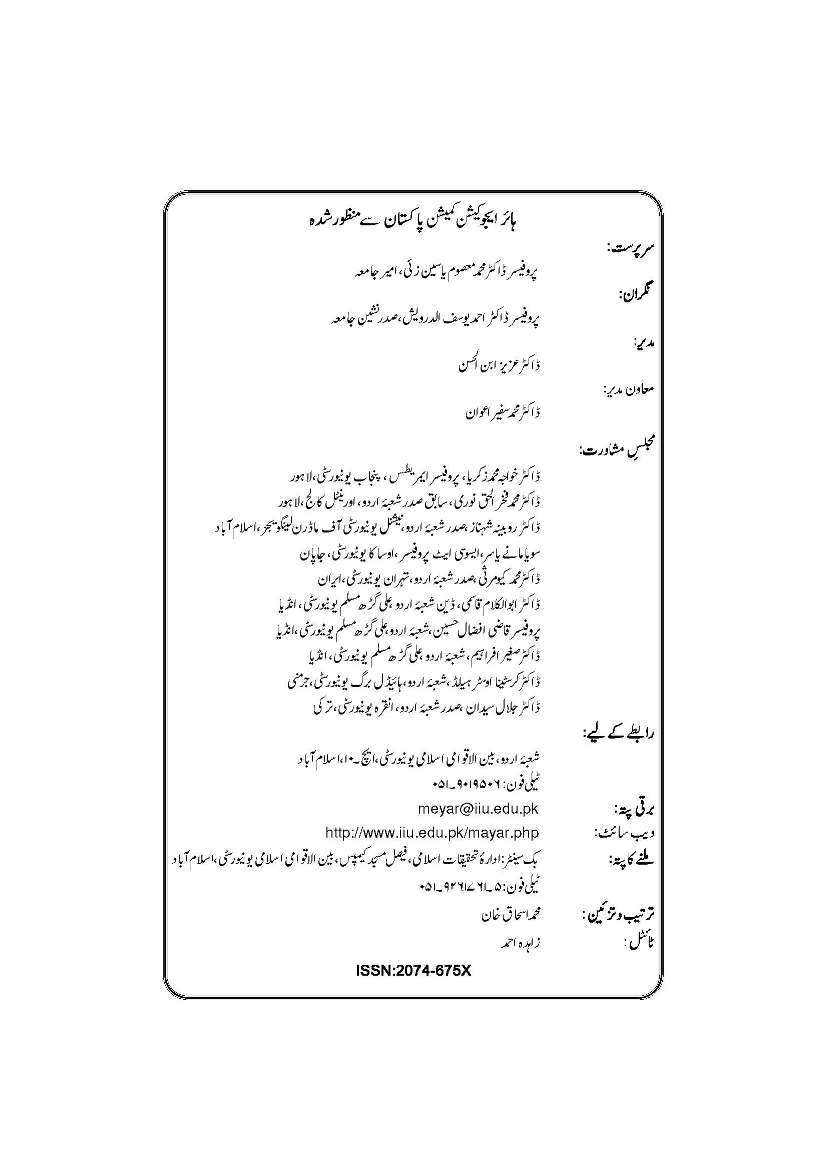 ہائر ایجوکیشن کمیشن پاکستان سے منظور شدہ
سرپرست:
پروفیسر ڈاکٹر محمد معصوم یاسین زئی، امیر جامعہ
نگران:
پروفیسر ڈاکٹر احمد یوسف الدرویش، صدر نشین جامعہ
مدیر:
ڈاکٹر عزیز ابن الحسن
معاون مدیر:
ڈاکٹر محمد سفیر اعوان
مجلسِ مشاورت:
ڈاکٹر خواجہ محمد زکریا، پروفیسر ایمریطس، پنجاب یونیورسٹی، لاہور
ڈاکٹر محمد فخر الحق نوری، سابق صدر شعبۂ اردو، اورینٹل کالج، لاہور
ڈاکٹر روبینہ شہناز، صدر شعبۂ اردو، نیشنل یونیورسٹی آف ماڈرن لینگویجز، اسلام آباد
سویامانے یاسر، ایسوسی ایٹ پروفیسر، اوساکا یونیورسٹی، جاپان
ڈاکٹر محمد کیومرثی، صدر شعبۂ اردو، تہران یونیورسٹی، ایران
ڈاکٹر ابوالکلام قاسمی، ڈین شعبۂ اردو، علی گڑھ مسلم یونیورسٹی، انڈیا
پروفیسر قاضی افضال حسین، شعبۂ اردو، علی گڑھ مسلم یونیورسٹی، انڈیا
ڈاکٹر صغیر افراہیم، شعبۂ اردو، علی گڑھ مسلم یونیورسٹی، انڈیا
ڈاکٹر کرسٹینا اوسٹر ہیلڈ، شعبۂ اردو، ہائیڈل برگ یونیورسٹی، جرمنی
ڈاکٹر جلال سیدان، صدر شعبۂ اردو، انقرہ یونیورسٹی، ترکی
رابطے کے لیے:
شعبۂ اردو، بین الاقوامی اسلامی یونیورسٹی، ایچ۔۱۰، اسلام آباد
ٹیلی فون: ۹۰۱۹۵۰۶۔۰۵۱
برقی پتہ: meyar@iiu.edu.pk
ویب سائٹ: http://www.iiu.edu.pk/mayar.php
ملنے کا پتہ: بک سینٹر: ادارۂ تحقیقات اسلامی، فیصل مسجد کیمپس، بین الاقوامی اسلامی یونیورسٹی، اسلام آباد
ٹیلی فون: ۵۔۹۲۶۱۷۶۱۔۰۵۱
ترتیب و تزئین: محمد اسحاق خان
ٹائٹل: زاہدہ احمد
ISSN:2074-675X